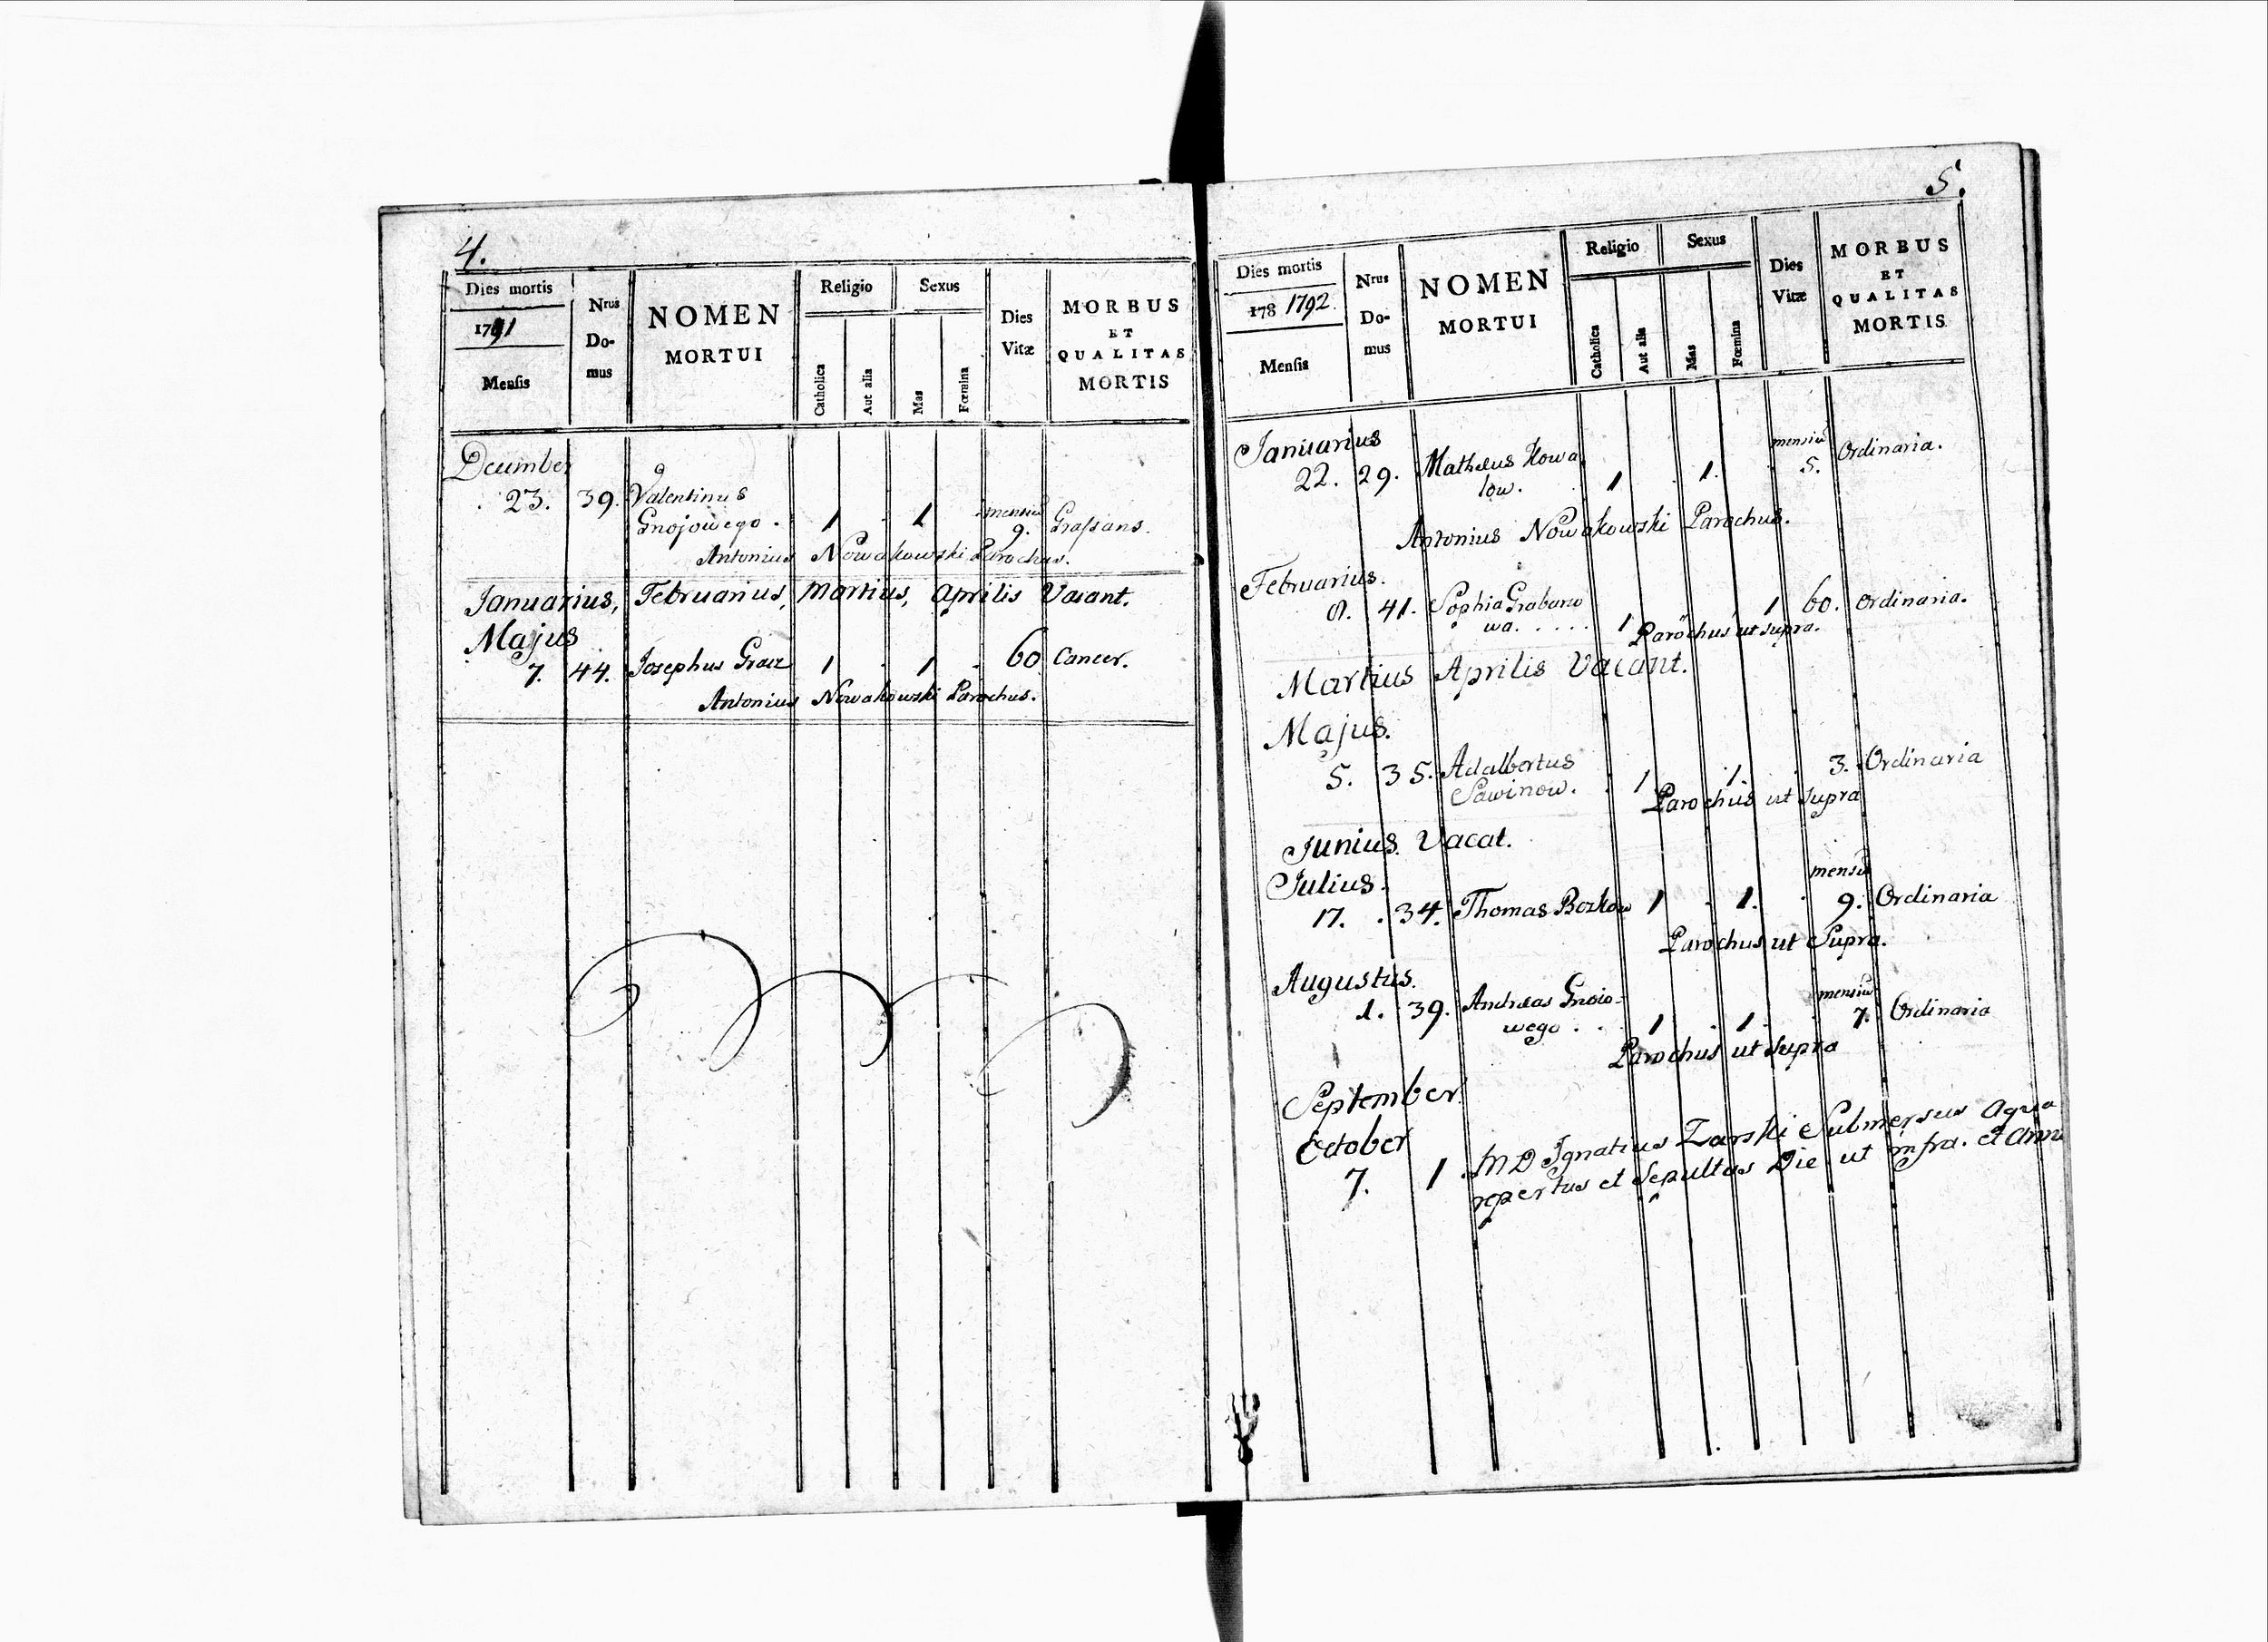 4.
Dies mortis
1791
Mensis
Nrus
Do-
mus
NOMEN
MORTUI
Religio
Catholica
Aut alia
Sexus
Mas
Fœmina
Dies
Vitæ
MORBUS
ET
QUALITAS
MORTIS
December
23. 39. Valentinus
Gnojowego. 1 1 mensiū 9. Grassans.
Antonius Nowakowski Parochus.
Januarius, Februarius, Martius, Aprilis Vacant.
Majus
7. 44. Josephus 1 1 60 Cancer.
Antonius Nowakowski Parochus.
5.
Dies mortis
178 1792.
Mensis
Nrus
Do-
mus
NOMEN
MORTUI
Religio
Catholica
Aut alia
Sexus
Mas
Fœmina
Dies
Vitæ
MORBUS
ET
QUALITAS
MORTIS
Januarius
22. 29. Mathæus Kowa
low. 1 1. mensiū 5. Ordinaria.
Antonius Nowakowski Parochus.
Februarius.
8. 41. Sophia Grabano
wa. . . . . 1 1 60. Ordinaria.
Parochus ut supra.
Martius Aprilis Vacant.
Majus.
5. 35. Adalbertus
Sawinow. 1 1. 3. Ordinaria
Parochus ut supra
Junius. Vacat.
Julius.
17. 34. Thomas Bozkow 1 1. mensiū 9. Ordinaria
Parochus ut Supra.
Augustus.
1. 39. Andreas Gnoio-
wego . . 1 1. mensiū 7. Ordinaria
Parochus ut supra
September
October
7. 1 MD Ignatius Zarski Submersus Aqua
repertus et Sepultus Die ut infra. et Anno